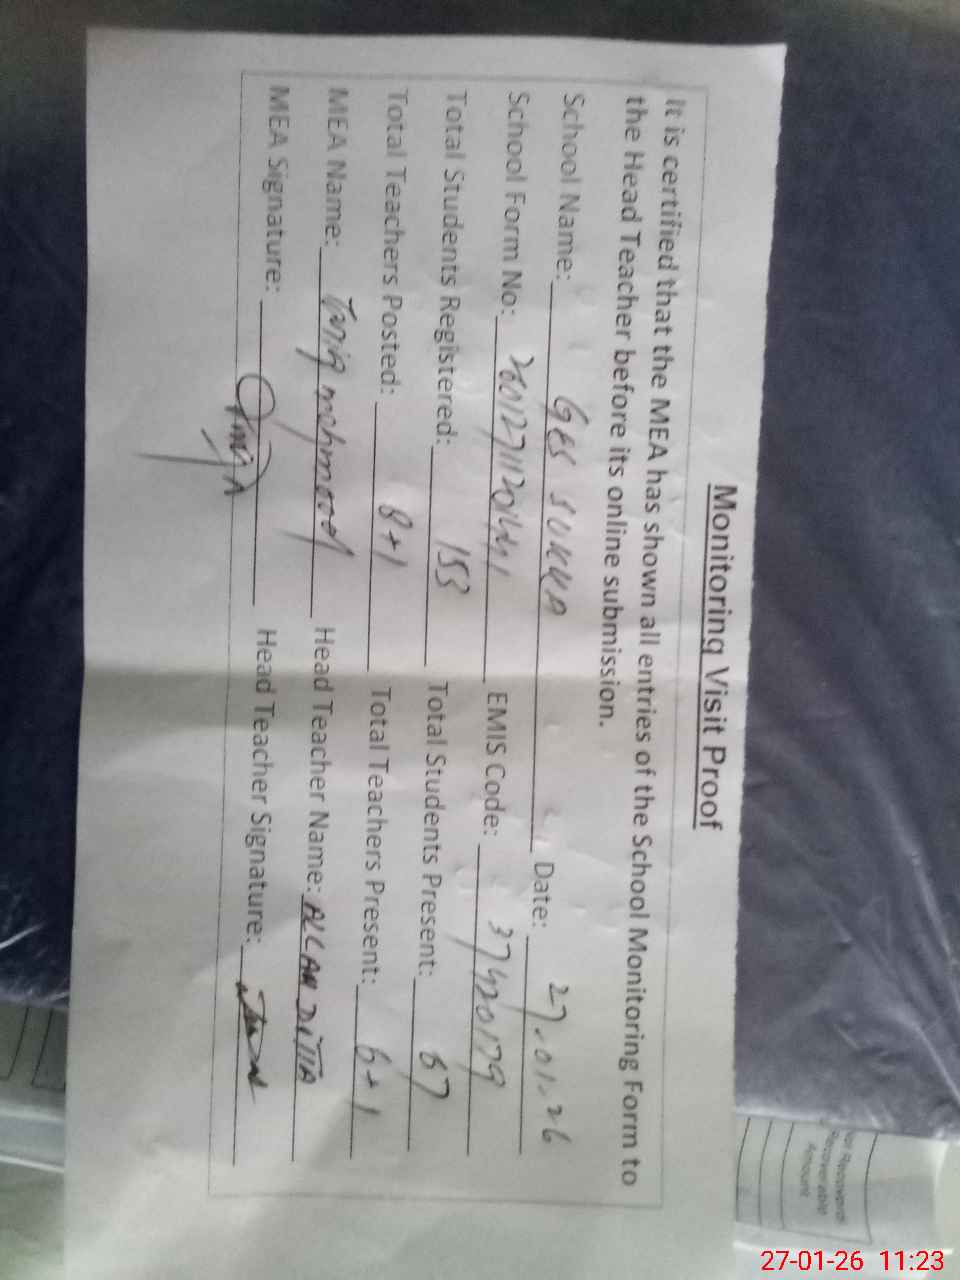 Monitoring Visit Proof
It is certified that the MEA has shown all entries of the School Monitoring Form to
the Head Teacher before its online submission.
School Name: GES SUKKA Date: 27.01.26
School Form No: EMIS Code: 37420179
Total Students Registered: 153 Total Students Present: 67
Total Teachers Posted: 8+1 Total Teachers Present: 6+1
MEA Name: Tariq mehmood Head Teacher Name: ALLAH DITTA
MEA Signature: Head Teacher Signature:
Not Recovered
Recoverable
Amount
27-01-26 11:23